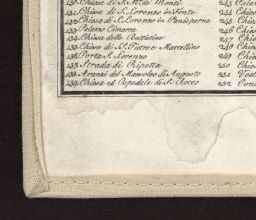 130. Chiesa di S. M.ª de' Monti
131. Chiesa di S. Lorenzo in Fonte
132. Chiesa di S. Lorenzo in Panisperna
133. Palazzo Cimarra
134. Chiesa delle Battistine
135. Chiesa di SS. Pietro e Marcellino
136. Porta S. Lorenzo
137. Strada di Ripetta
138. Avanzi del Mausoleo di Augusto
139. Chiesa ed Ospedale di S. Rocco
243
245 Chies
246 Chies
248 Chies
250 Chies
251 Vest
252